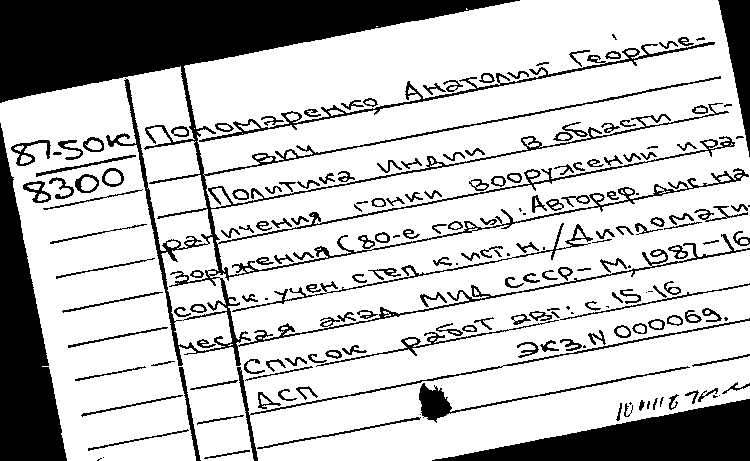 87-50к
8300
Пономаренко, Анатолий Георгие-
вич
Политика Индии в области ог-
раничения гонки вооружений и ра-
зоружения (80-е годы): Автореф. дис. на
соиск. учен. степ. к. ист. н. / Дипломати-
ческая акад. МИД СССР.- М, 1987.-16
Список работ авт: с. 15-16.
ДСП Экз. N 000069.